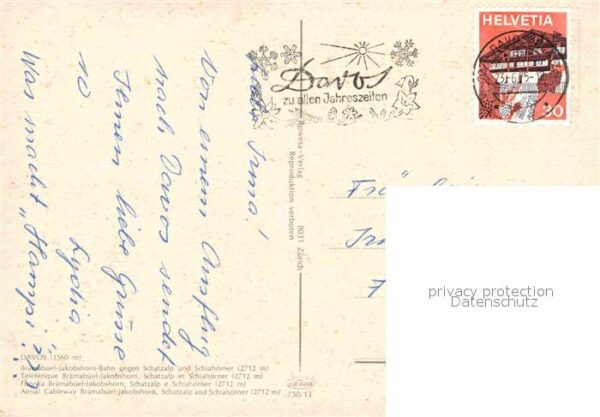 Liebe Irma!
Von einem Ausflug
nach Davos sendet
Ihnen liebe Grüsse
Lydia
Was macht „Hampi"?!!
HELVETIA
30
DAVOS
Davos
zu allen Jahreszeiten
Rowesa-Verlag 8051 Zürich
Reproduktion verboten
Fräulein
privacy protection
Datenschutz
DAVOS (1560 m)
Brämabüel-Jakobshorn-Bahn gegen Schatzalp und Schiahörner (2712 m)
Téléférique Brämabüel-Jakobshorn, Schatzalp et Schiahörner (2712 m)
Funivia Brämabüel-Jakobshorn, Schatzalp e Schiahörner (2712 m)
Aerial Cableway Brämabüel-Jakobshorn, Schatzalp and Schiahörner (2712 m)
750/13